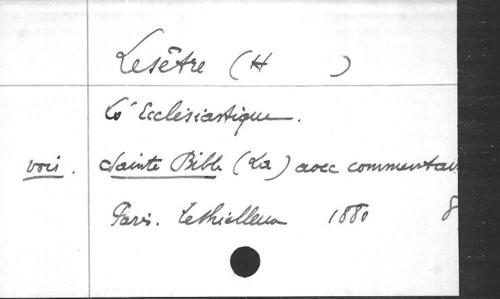 Lesêtre (H )
L'Ecclésiastique.
vois. Sainte Bible (La) avec commentai
Paris. Lethielleux 1880 8